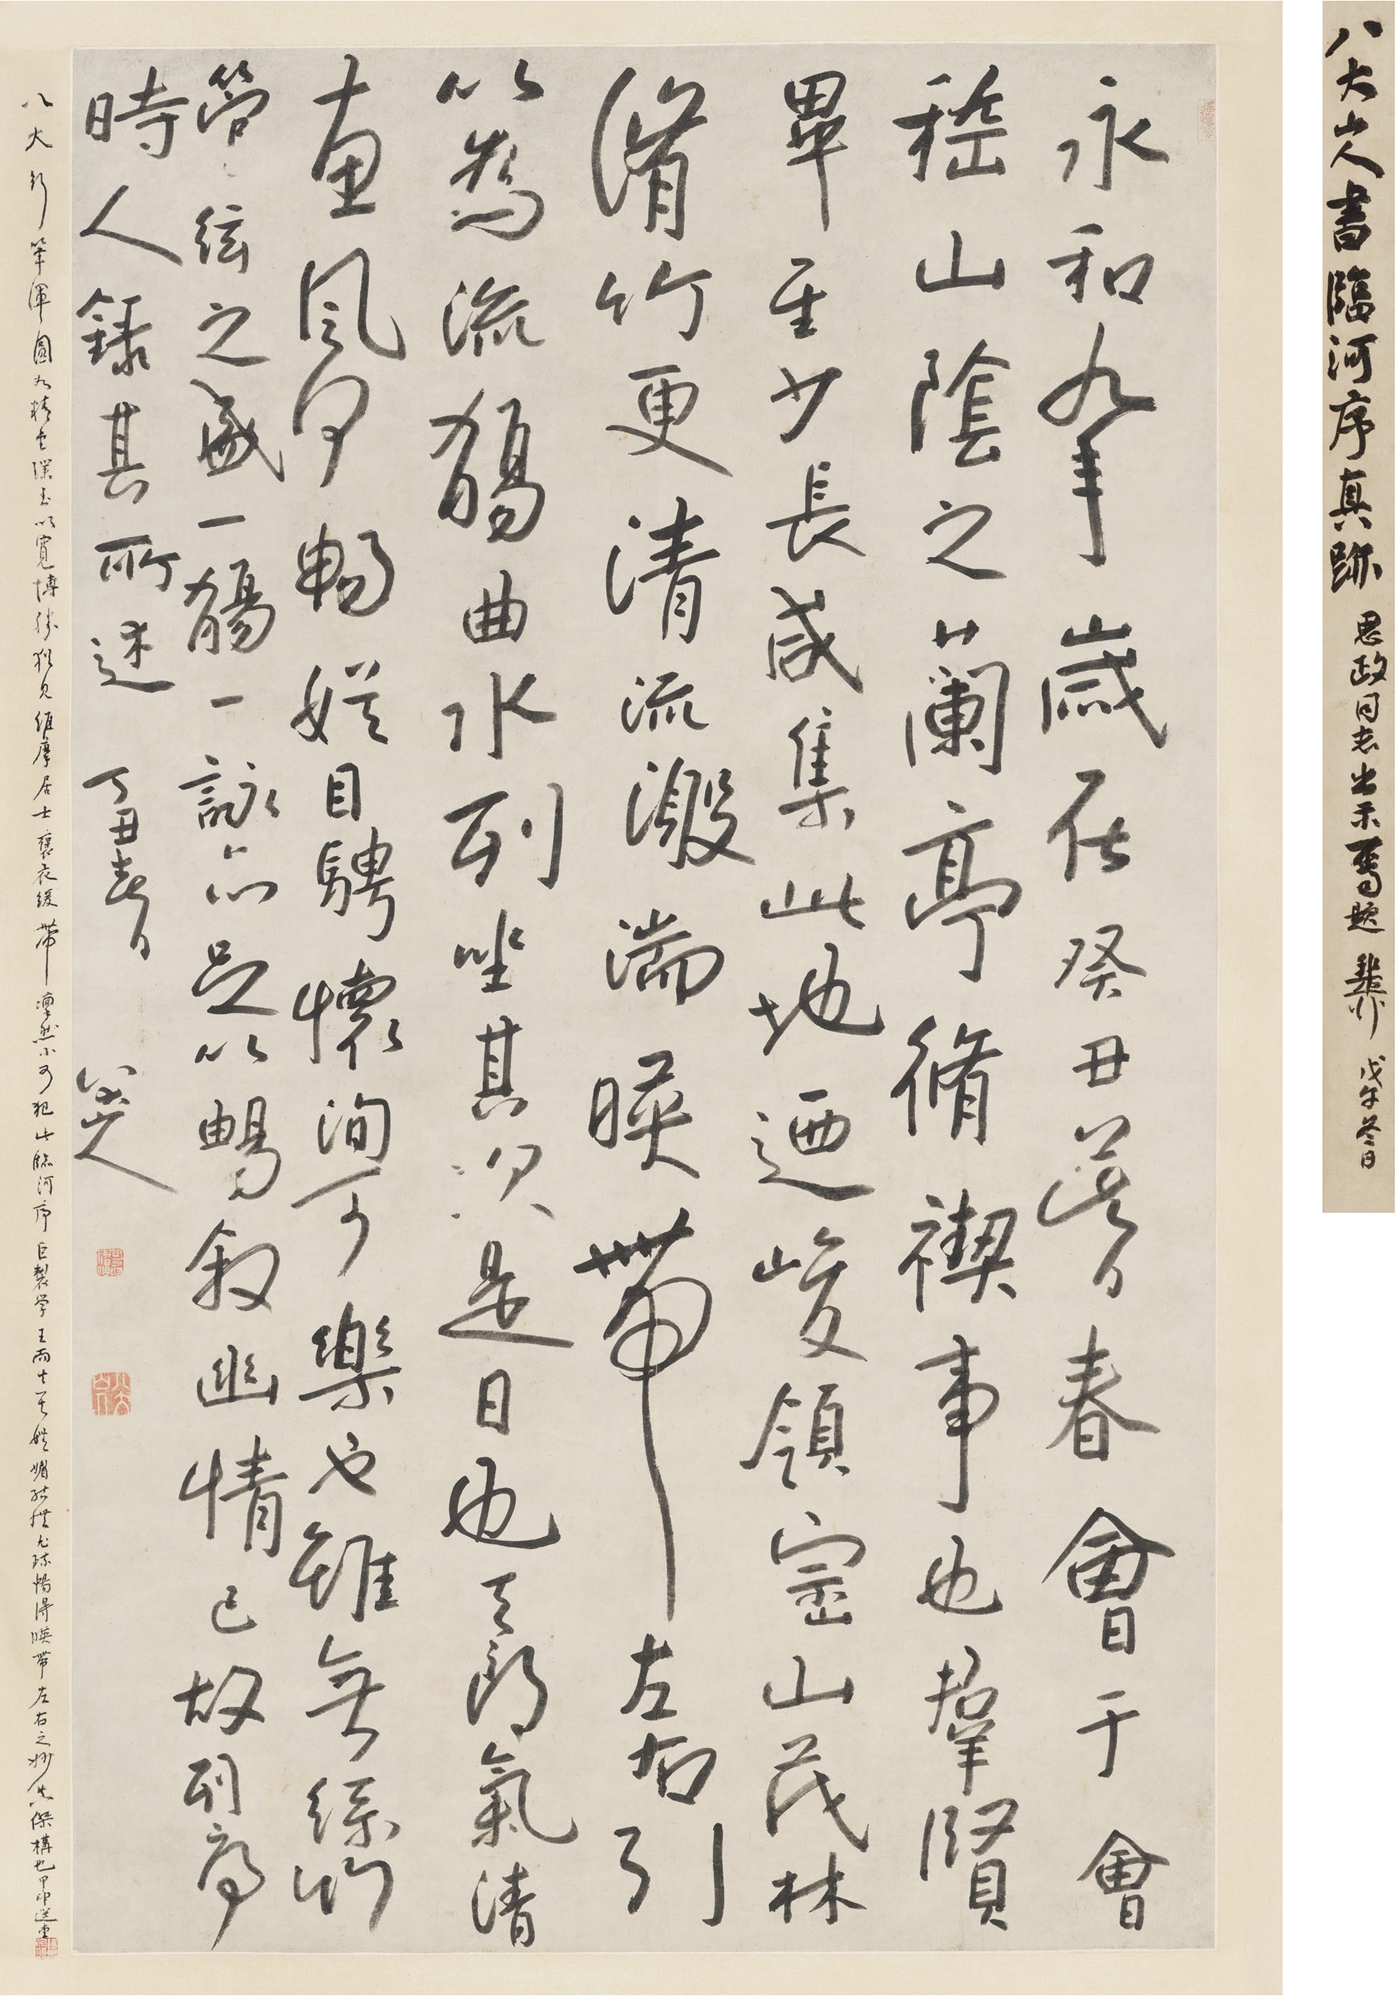 八大山人書臨河序真跡 思政同志出示屬題 稚柳 戊午冬日
永和九年歲在癸丑暮春會于會
稽山陰之蘭亭脩禊事也羣賢
畢至少長咸集此地迺峻領崇山茂林
脩竹更清流激湍暎帶左右引
以為流觴曲水列坐其次是日也天朗氣清
惠風和暢娛目騁懷洵可樂也雖無絲竹
管弦之盛一觴一詠亦足以暢敘幽情已故列序
時人錄其所述 丁丑春日 八大山人
八大行筆渾圓如精金璞玉以寬博勝猶見維摩居士褒衣緩帶凜然不可犯此臨河序巨製學王而尤疏暢得暎帶左右之妙傑構也甲申選堂